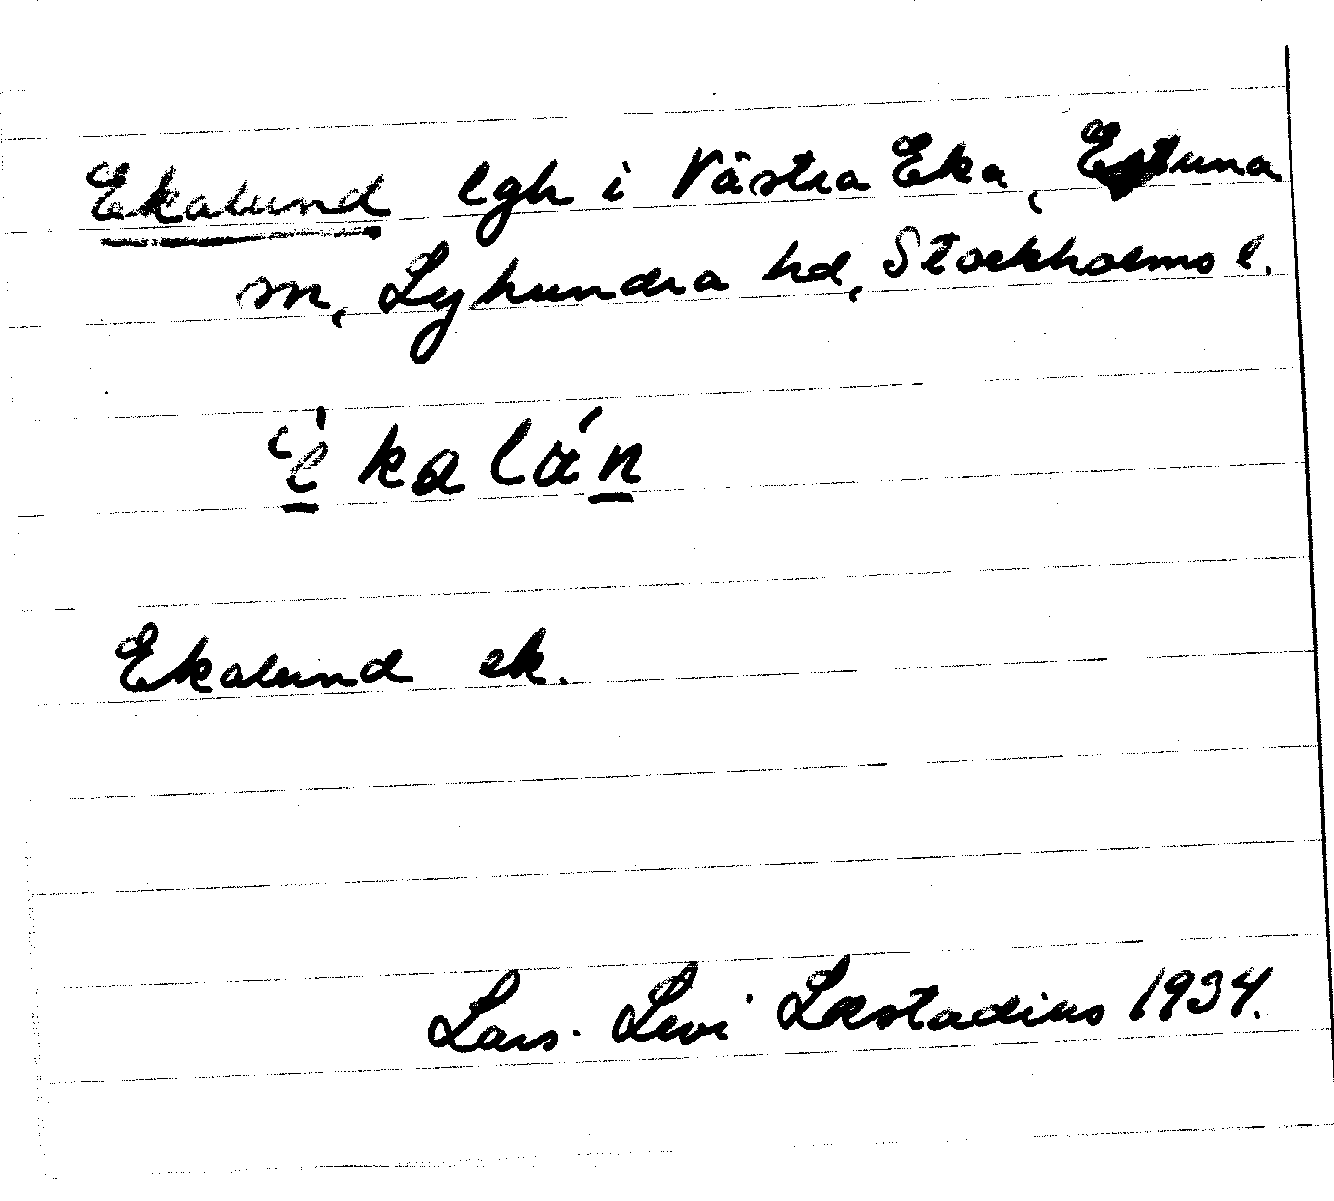 Ekalund lgh i Västra Eka, Estuna
sn, Lyhundra hd, Stockholms l.
ekalán
Ekalund ek.
Lars-Levi Læstadius 1934.